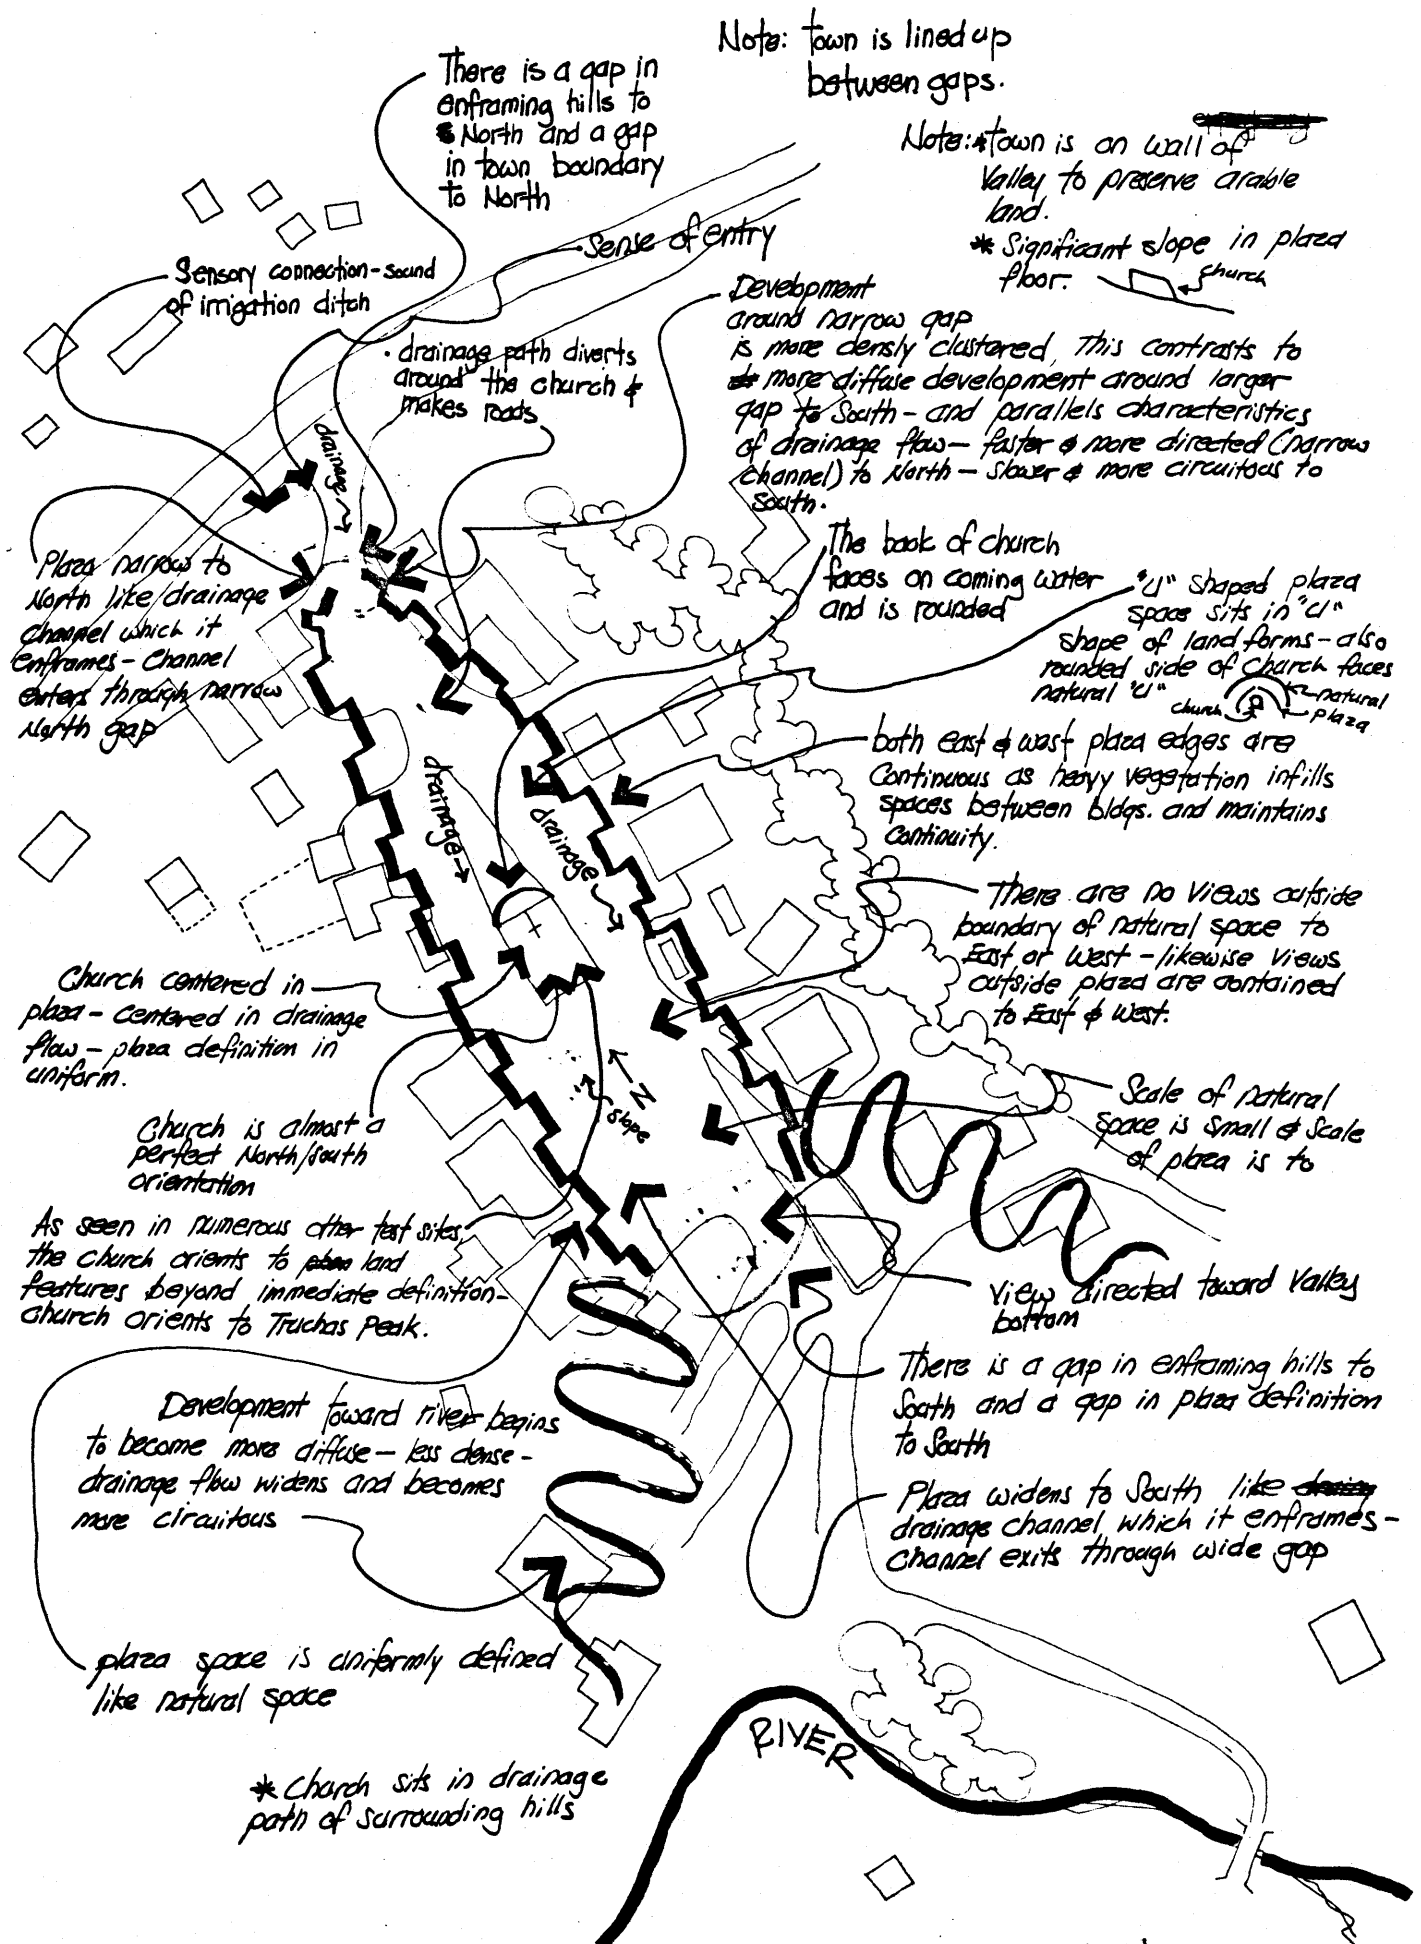 Note: town is lined up
between gaps.
There is a gap in
enframing hills to
North and a gap
in town boundary
to North
Note: town is on wall of
Valley to preserve arable
land.
* Significant slope in plaza
floor.
church
Sense of entry
Sensory connection-sound
of irrigation ditch
Development
around narrow gap
is more densly clustered. This contrasts to
more diffuse development around larger
gap to South - and parallels characteristics
of drainage flow - faster & more directed (narrow
channel) to North - slower & more circuitous to
South.
• drainage path diverts
around the church &
makes roads
drainage
Plaza narrow to
North like drainage
Channel which it
enframes - Channel
enters through narrow
North gap
The back of church
faces on coming water
and is rounded
"U" shaped plaza
space sits in "U"
shape of land forms - also
rounded side of Church faces
natural "U"
church
natural
plaza
both east & west plaza edges are
Continuous as heavy vegetation infills
spaces between bldgs. and maintains
Continuity.
drainage
drainage
There are no views outside
boundary of natural space to
East or West - likewise views
outside plaza are contained
to East & West.
Church centered in
plaza - centered in drainage
flow - plaza definition in
uniform.
N
slope
Scale of natural
space is small & scale
of plaza is to
Church is almost a
perfect North/South
orientation
As seen in numerous other test sites,
the church orients to land
features beyond immediate definition-
church orients to Truchas Peak.
View directed toward Valley
bottom
There is a gap in enframing hills to
South and a gap in plaza definition
to South
Development toward river begins
to become more diffuse - less dense -
drainage flow widens and becomes
more circuitous
Plaza widens to South like
drainage channel which it enframes -
Channel exits through wide gap
plaza space is uniformly defined
like natural space
RIVER
* Church sits in drainage
path of surrounding hills